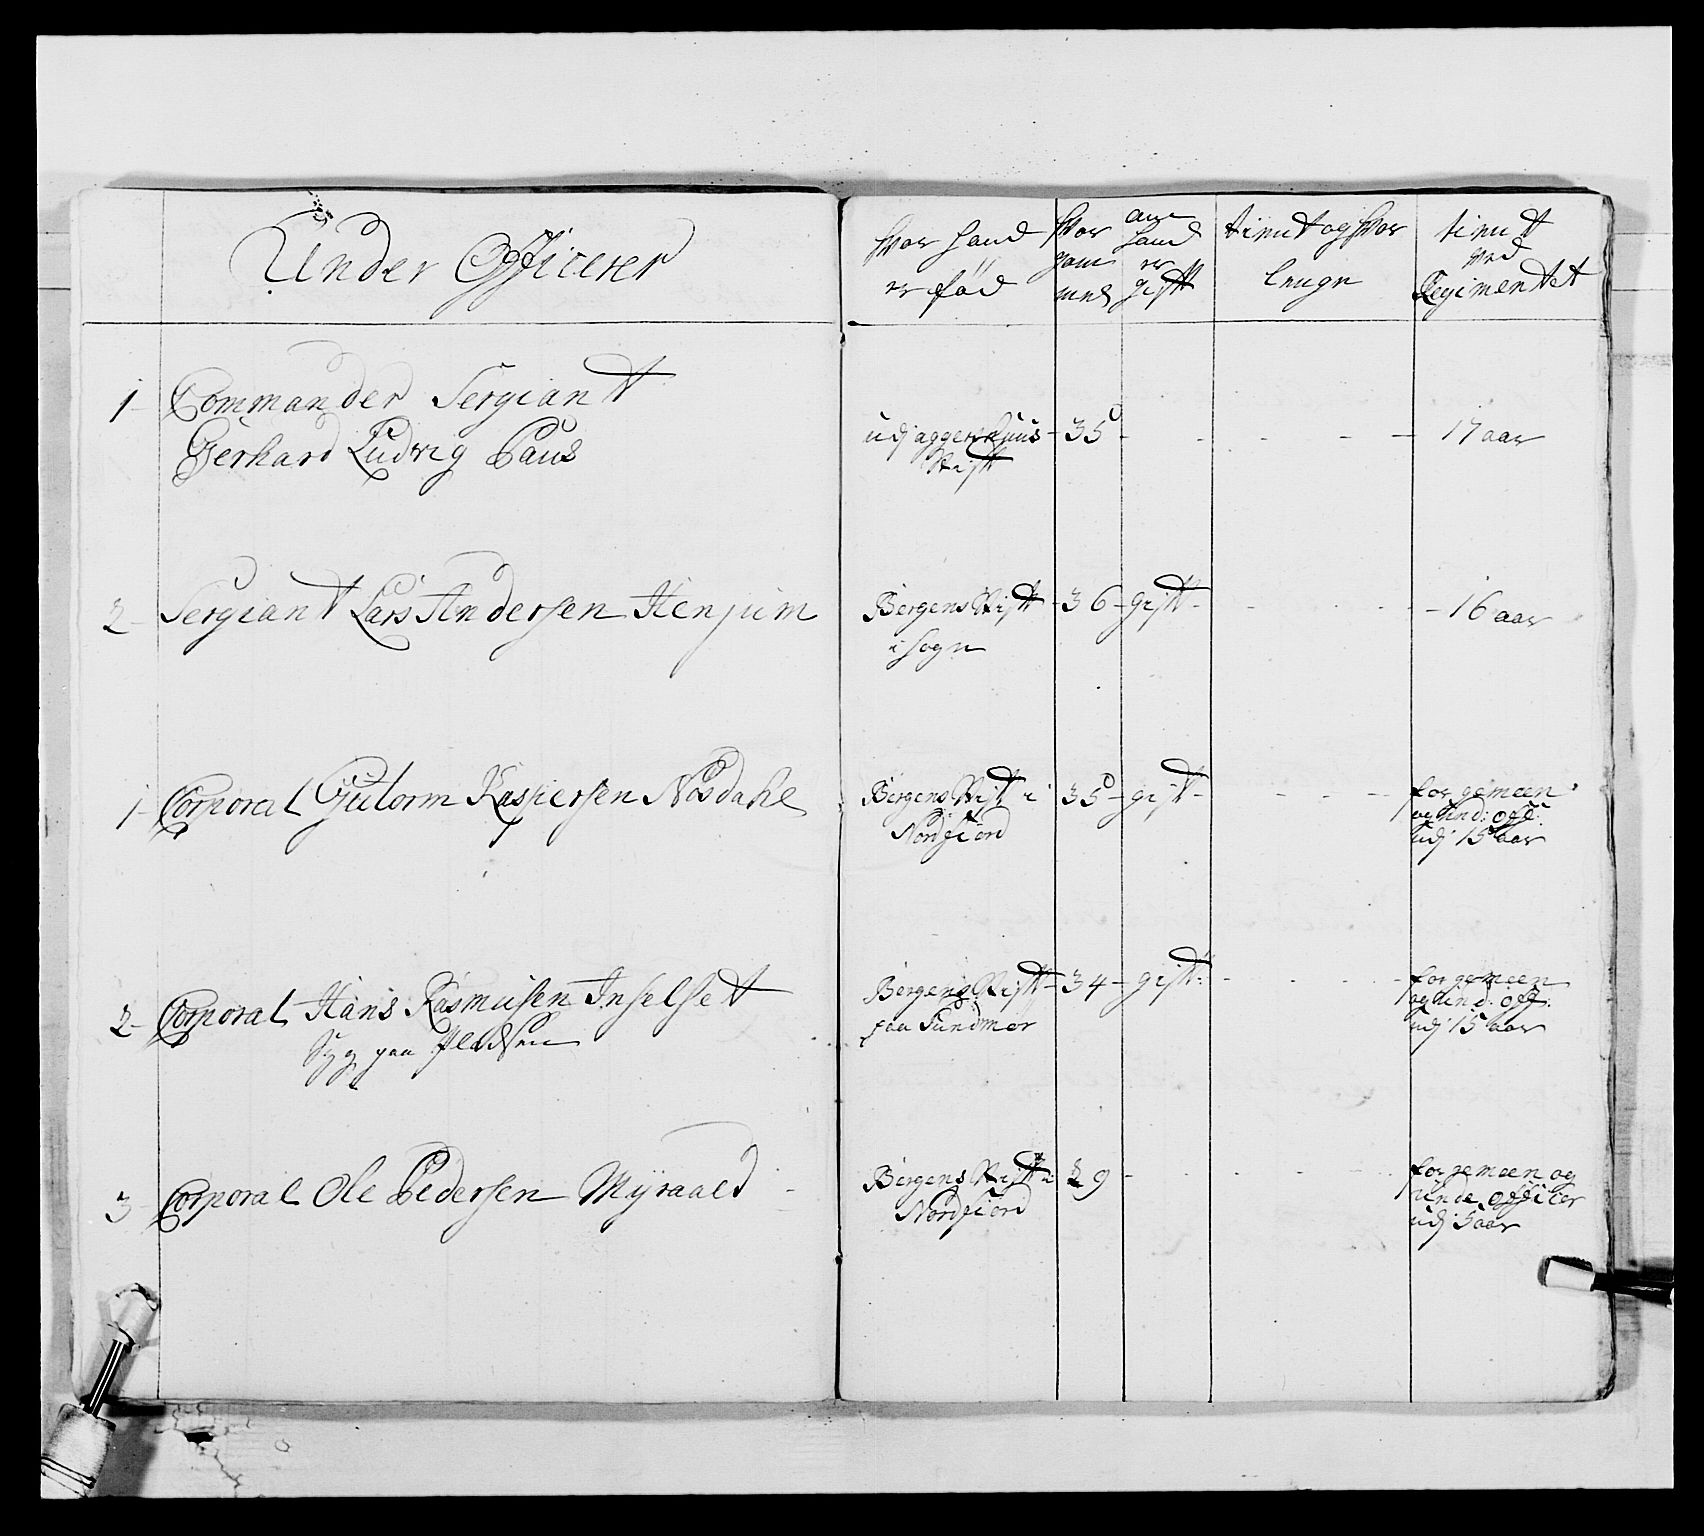 Under Officerer
hvor hand
er fød
hvor
gam
mel
om
hand
er
gift
tient og hvor
lenge
tient
ved
Regimentet
1 Commander Sergiant
Gerhard Ludvig Paus
udj aggershuus
Stift
35
17 aar
2 Sergiant Lars Andersen Henjum
Bergens Stift
i Sogn
36
gift
16 aar
1 Corporal Gutorm Kaspersen Nosdahl
Bergens Stift i
Nordfiord
35
gift
for gemeen
og und: off:
udj 15 aar
2 Corporal Hans Rasmusen Inselset
Syg paa
Bergens Stift
paa Sundmør
34
gift
for gemeen
og und: off:
udj 15 aar
3 Corporal Ole Pedersen Myraaed
Bergens Stift i
Nordfiord
29
for gemeen og
unde officer
udj 5 aar